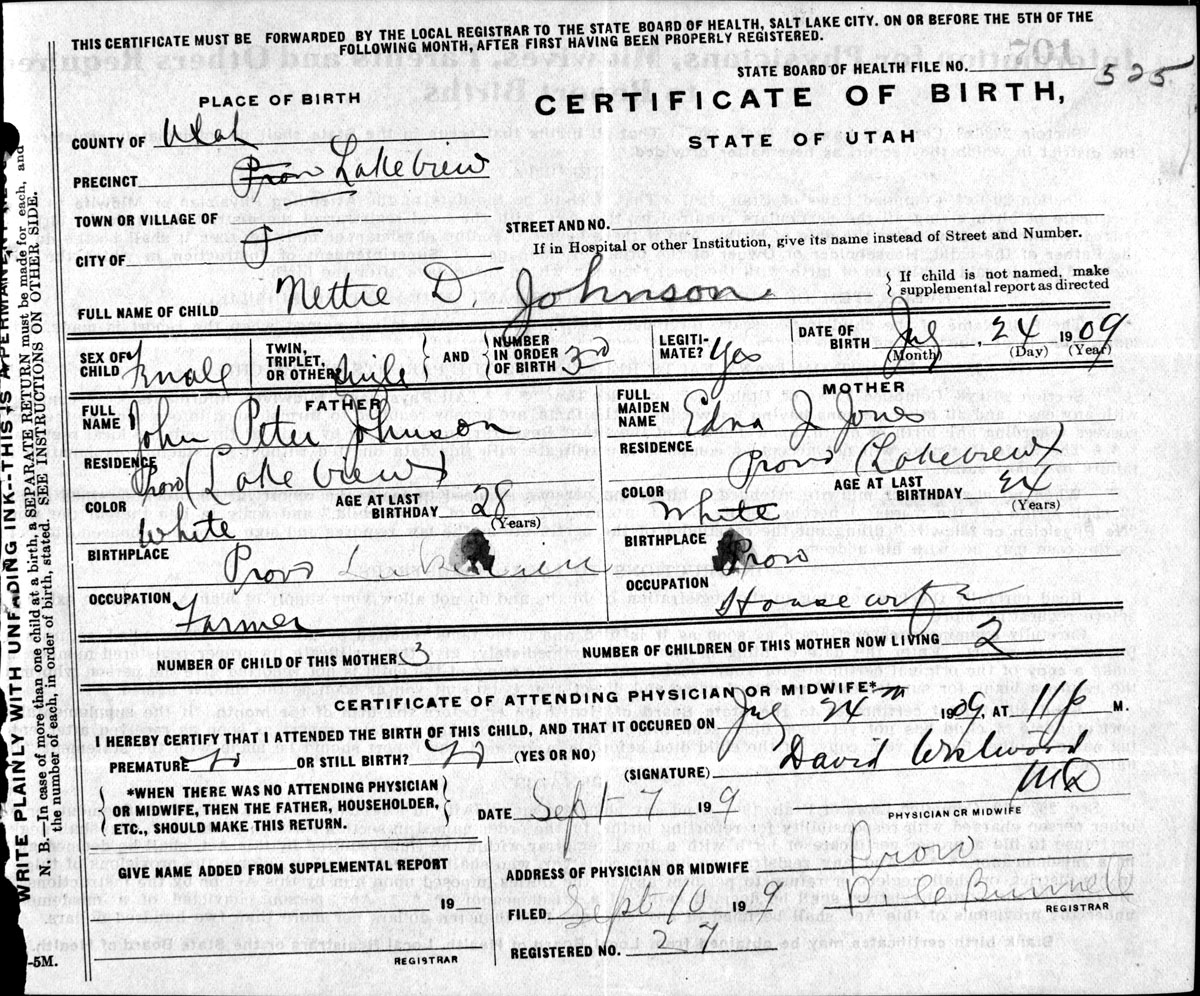 THIS CERTIFICATE MUST BE FORWARDED BY THE LOCAL REGISTRAR TO THE STATE BOARD OF HEALTH, SALT LAKE CITY. ON OR BEFORE THE 5TH OF THE
FOLLOWING MONTH, AFTER FIRST HAVING BEEN PROPERLY REGISTERED.
107
STATE BOARD OF HEALTH FILE NO. 525
PLACE OF BIRTH
CERTIFICATE OF BIRTH,
STATE OF UTAH
COUNTY OF Utah
PRECINCT Provo Lakeview
TOWN OR VILLAGE OF
STREET AND NO.
If in Hospital or other Institution, give its name instead of Street and Number.
CITY OF
FULL NAME OF CHILD Nettie D Johnson
If child is not named, make
supplemental report as directed
SEX OF CHILD Female
TWIN, TRIPLET, OR OTHER
AND
NUMBER IN ORDER OF BIRTH 3rd
LEGITI- MATE? Yes
DATE OF BIRTH July 24 1909
(Month) (Day) (Year)
FATHER
FULL NAME John Peter Johnson
RESIDENCE Provo (Lakeview)
COLOR White
AGE AT LAST BIRTHDAY 28
(Years)
BIRTHPLACE Provo
OCCUPATION Farmer
MOTHER
FULL MAIDEN NAME Edna J Jones
RESIDENCE Provo (Lakeview)
COLOR White
AGE AT LAST BIRTHDAY 24
(Years)
BIRTHPLACE Provo
OCCUPATION Housewife
NUMBER OF CHILD OF THIS MOTHER 3
NUMBER OF CHILDREN OF THIS MOTHER NOW LIVING 2
CERTIFICATE OF ATTENDING PHYSICIAN OR MIDWIFE*
I HEREBY CERTIFY THAT I ATTENDED THE BIRTH OF THIS CHILD, AND THAT IT OCCURED ON July 24th 1909, AT 11 P M.
PREMATURE No OR STILL BIRTH? No (YES OR NO)
(SIGNATURE) David Westwood
MD
PHYSICIAN OR MIDWIFE
*WHEN THERE WAS NO ATTENDING PHYSICIAN
OR MIDWIFE, THEN THE FATHER, HOUSEHOLDER,
ETC., SHOULD MAKE THIS RETURN.
DATE Sept 7 19 9
GIVE NAME ADDED FROM SUPPLEMENTAL REPORT
19
REGISTRAR
ADDRESS OF PHYSICIAN OR MIDWIFE Provo
FILED Sept 7 19 9
REGISTRAR
REGISTERED NO. 27
WRITE PLAINLY WITH UNFADING INK--THIS IS A PERMANENT
N. B.—In case of more than one child at a birth, a SEPARATE RETURN must be made for each, and
the number of each, in order of birth, stated. SEE INSTRUCTIONS ON OTHER SIDE.
-5M.